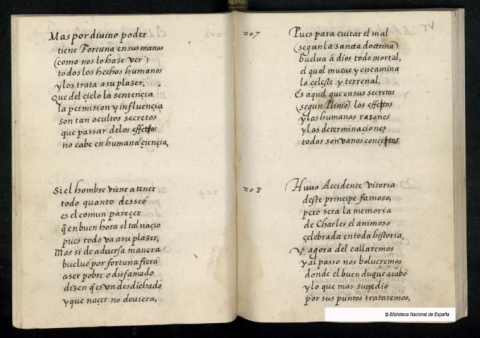 Mas por divino poder
tiene Fortuna en sus manos
(como nos lo hase ver)
todos los hechos humanos
y los trata a su plaser,
Que del cielo la sentencia
la permission y influencia
son tan ocultos secretos
que passar de los effectos
no cabe en humana ciencia,
Si el hombre viene a tener
todo quanto desseó
es el comun pareçer
q̃ en buen hora el tal naçio
pues todo va a su plaser,
Mas si de adversa manera
buelve por fortuna fiera
a ser pobre o disfamado
dizen q̃ es un desdichado
y que naçer no deviera,
207
74
Pues para evitar el mal
(segun la sancta doctrina)
buelva a dios todo mortal,
el qual mueve y encamina
lo çeleste y terrenal,
Es aquel que en sus secretos
segun Plinio los effectos
y los humanas razones
y los determinaciones
todos son vanos conceptos
208
Huvo Accidente vitoria
deste principe famoso,
pero sera la memoria
de Charles el animoso
celebrada en toda historia,
Y agora del callaremos
y al passo nos bolveremos
donde el buen duque acabó
y lo que mas suçedio
por sus puntos trataremos,
© Biblioteca Nacional de España